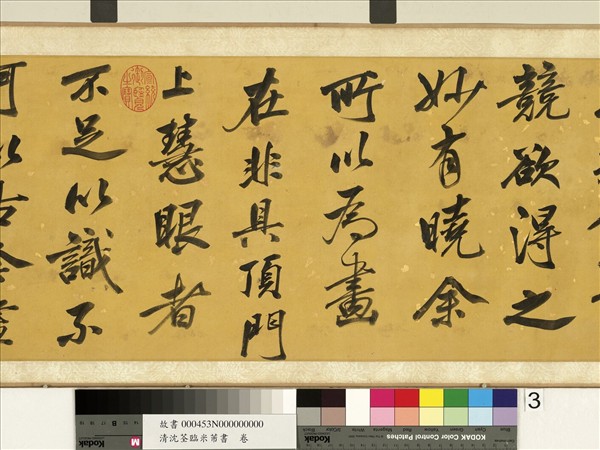 競欲得之
妙有曉余
所以為畫
在非具頂門
上慧眼者
不足以識不
可以古
故書 000453N000000000
清沈荃臨米芾書 卷
3
Kodak
KODAK Color Control Patches
Blue
Cyan
Green
Yellow
Red
Magenta
White
3/Color
Black
B
M
Kodak